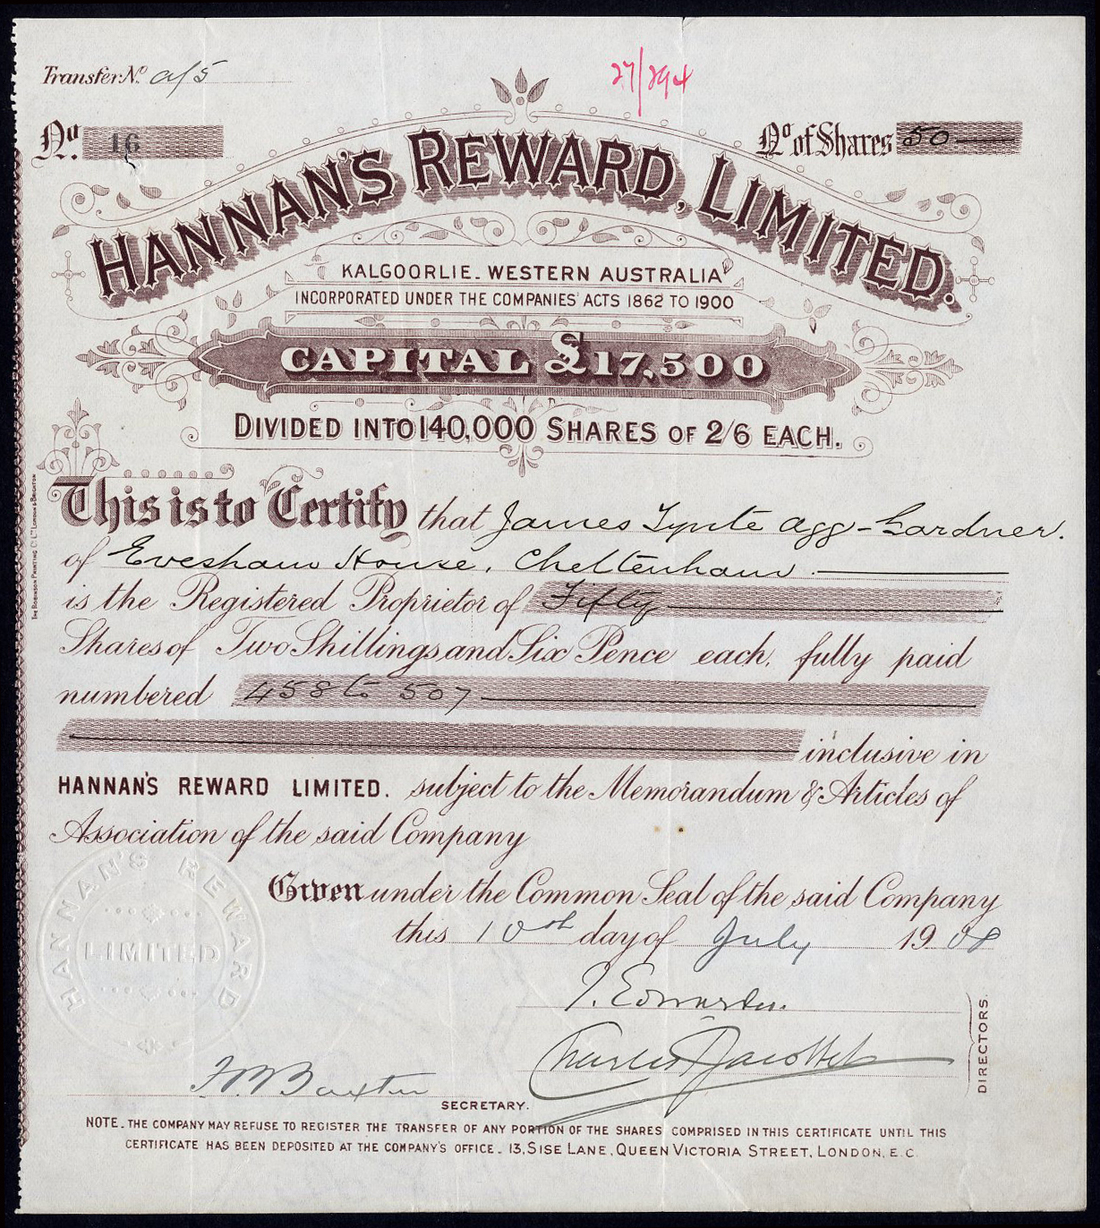 Transfer No. a/5
27/294
No. 16
No. of Shares 50
HANNAN'S REWARD, LIMITED.
KALGOORLIE. WESTERN AUSTRALIA
INCORPORATED UNDER THE COMPANIES' ACTS 1862 TO 1900
CAPITAL £17,500
DIVIDED INTO 140,000 SHARES OF 2/6 EACH.
This is to Certify that James Tynte Agg-Gardner.
of Evesham House, Cheltenham.
is the Registered Proprietor of Fifty
Shares of Two Shillings and Six Pence each, fully paid
numbered 458 to 507
inclusive in
HANNAN'S REWARD LIMITED. subject to the Memorandum & Articles of
Association of the said Company
Given under the Common Seal of the said Company
this 10th day of July 1908
HANNAN'S REWARD
LIMITED
J. Edwards.
Charles Jacottet
DIRECTORS.
Baxter
SECRETARY.
NOTE. THE COMPANY MAY REFUSE TO REGISTER THE TRANSFER OF ANY PORTION OF THE SHARES COMPRISED IN THIS CERTIFICATE UNTIL THIS
CERTIFICATE HAS BEEN DEPOSITED AT THE COMPANY'S OFFICE. 13, SISE LANE, QUEEN VICTORIA STREET, LONDON, E.C.
THE ROBINSON PRINTING CO. LTD LONDON & BRIGHTON